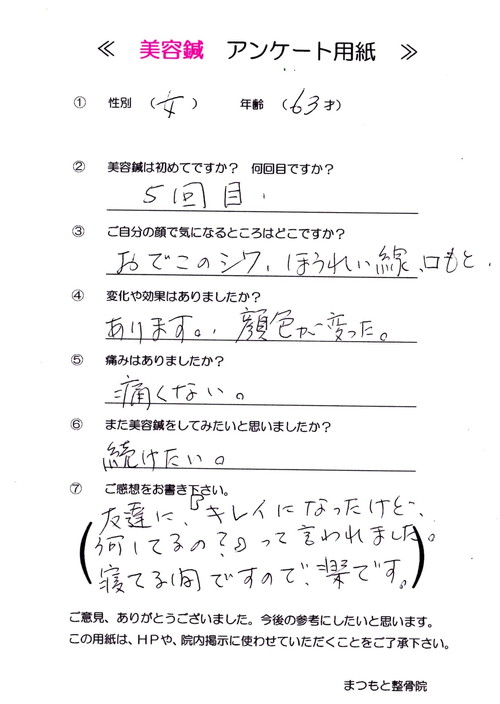 ≪ 美容鍼 アンケート用紙 ≫
① 性別 （女） 年齢 （63才）
② 美容鍼は初めてですか？ 何回目ですか？
5回目.
③ ご自分の顔で気になるところはどこですか？
おでこのシワ、ほうれい線、口もと.
④ 変化や効果はありましたか？
あります。、顔色が変った。
⑤ 痛みはありましたか？
痛くない。
⑥ また美容鍼をしてみたいと思いましたか？
続けたい。
⑦ ご感想をお書き下さい。
友達に、『キレイになったけど、
何してるの？』って言われました。
寝てる間ですので、楽です。
ご意見、ありがとうございました。今後の参考にしたいと思います。
この用紙は、HPや、院内掲示に使わせていただくことをご了承下さい。
まつもと整骨院